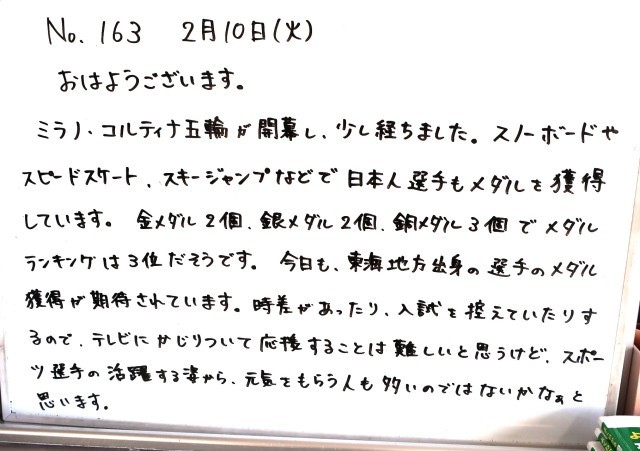 No. 163 2月10日(火)
おはようございます。
ミラノ、コルティナ五輪が開幕し、少し経ちました。スノーボードや
スピードスケート、スキージャンプなどで日本人選手もメダルを獲得
しています。金メダル2個、銀メダル2個、銅メダル3個でメダル
ランキングは3位だそうです。今日も、東海地方出身の選手のメダル
獲得が期待されています。時差があったり、入試を控えていたりす
るので、テレビにかじりついて応援することは難しいと思うけど、スポー
ツ選手の活躍する姿から、元気をもらう人も多いのではないかなぁと
思います。